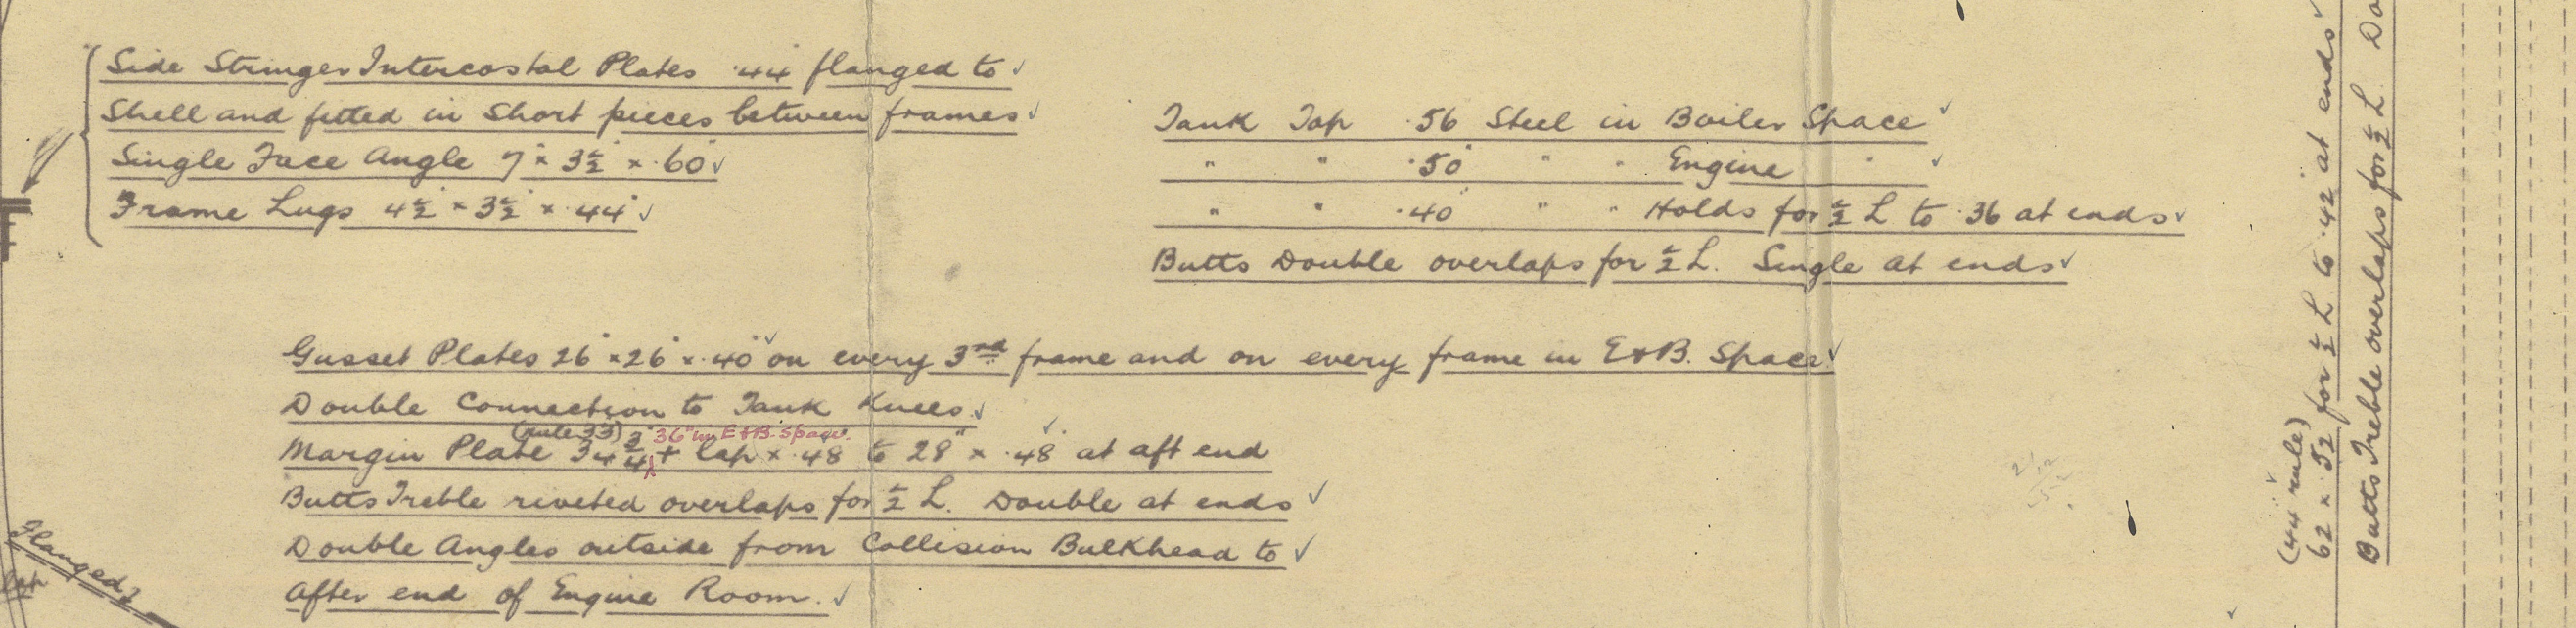 Side Stringer Intercostal Plates .44" flanged to ✓
Shell and fitted in Short pieces between frames ✓
Single Face Angle 7" × 3½" × .60" ✓
Frame Lugs 4½" × 3½" × .44" ✓
Tank Top .56 Steel in Boiler Space ✓
" " .50 " " Engine " ✓
" " .40 " " Holds for ½ L to .36 at ends ✓
Butts Double overlaps for ½ L. Single at ends ✓
Gusset Plates 26" × 26" × .40" on every 3rd frame and on every frame in E&B. Space ✓
Double Connection to Tank Knees. ✓
(rule 33) 36" in E&B. Space.
Margin Plate 34¾" + lap × .48 to 28" × .48 at aft end
Butts Treble riveted overlaps for ½ L. Double at ends ✓
Double Angles outside from Collision Bulkhead to ✓
After end of Engine Room. ✓
Flanged 3
lap
(44 rule) ✓
62 × .52 for ½ L to .42 at ends ✓
Butts Treble overlaps for ½ L. Do